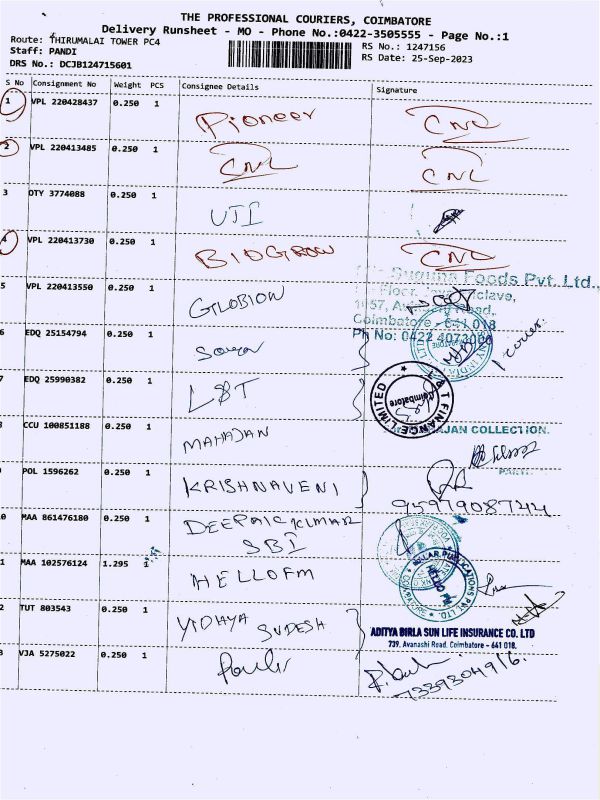 THE PROFESSIONAL COURIERS, COIMBATORE
Delivery Runsheet - MO - Phone No.:0422-3505555 - Page No.:1
Route: THIRUMALAI TOWER PC4
RS No.: 1247156
Staff: PANDI
RS Date: 25-Sep-2023
DRS No.: DCJB124715601
S No Consignment No Weight PCS Consignee Details Signature
1 VPL 220428437 0.250 1 Pioneer
2 VPL 220413485 0.250 1 CNL CNL
3 OTY 3774088 0.250 1 UTI
4 VPL 220413730 0.250 1 BIOGROW
Suguna Foods Pvt. Ltd.,
5 VPL 220413550 0.250 1 GLOBION
Coimbatore - 641 018
Ph No: 0422
6 EDQ 25154794 0.250 1
7 EDQ 25990382 0.250 1 L&T
L&T FINANCE LIMITED
Coimbatore
8 CCU 100851188 0.250 1 MAHAJAN
COLLECTION.
9 POL 1596262 0.250 1 KRISHNAVENI
0 MAA 861476180 0.250 1 DEEPAK KUMAR
SBI
1 MAA 102576124 1.295 1 HELLO FM
HELLO FM
2 TUT 803543 0.250 1 VIDHYA SUDESH
ADITYA BIRLA SUN LIFE INSURANCE CO. LTD
739, Avanashi Road, Coimbatore - 641 018.
3 VJA 5275022 0.250 1